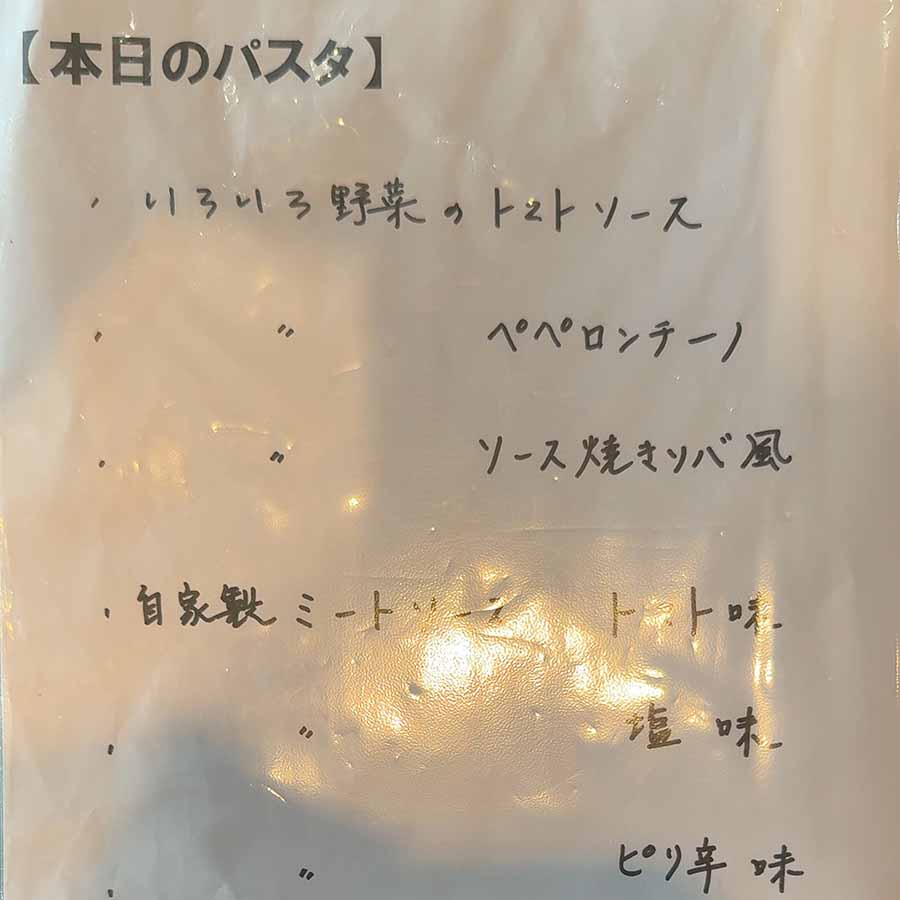 【本日のパスタ】
・いろいろ野菜のトマトソース
・ 〃 ペペロンチーノ
・ 〃 ソース焼きソバ風
・自家製ミートソース トマト味
・ 〃 塩味
・ 〃 ピリ辛味